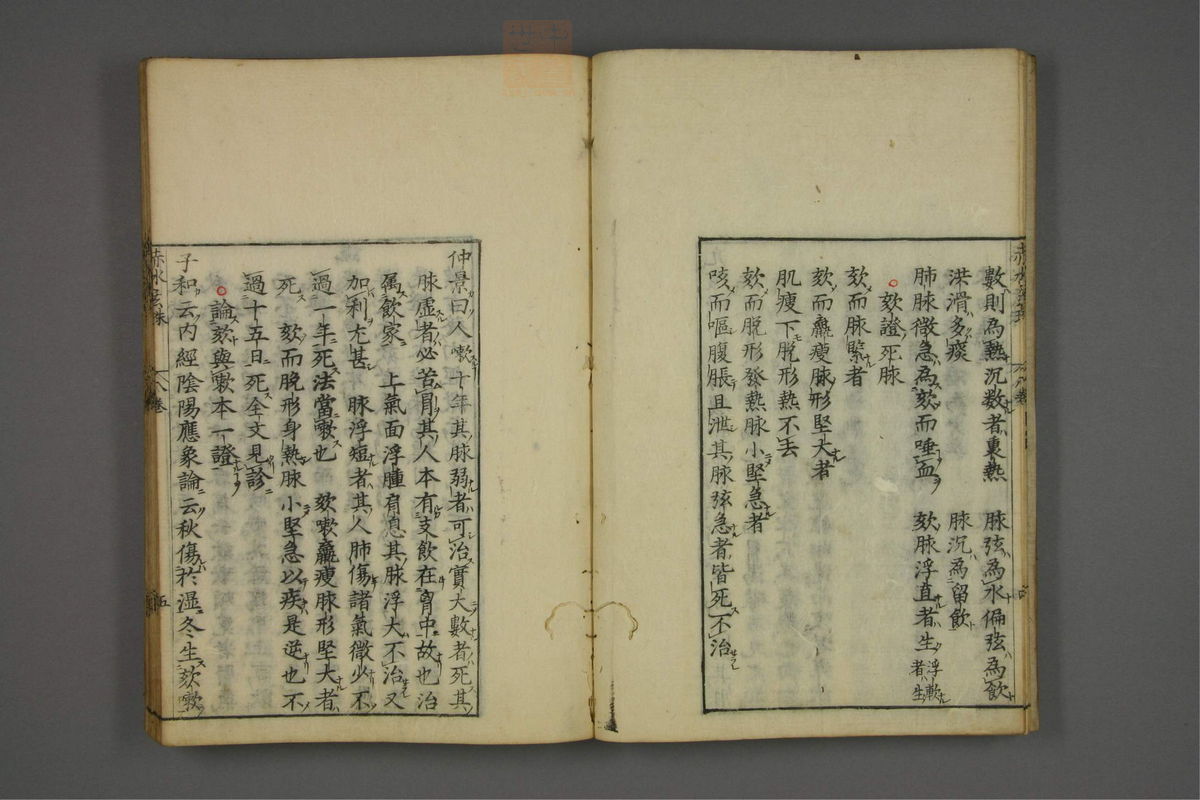 數則為熱沉数者裏熱　脉弦為水偏弦為飲
洪滑多痰　脉沉為留飲
肺脉微急為欬而唾血　欬脉浮直者生浮軟者生
欬證死脉
欬而脉緊者
欬而羸瘦脉形堅大者
肌瘦下脱形熱不去
欬而脱形發熱脉小堅急者
咳而嘔腹脹且泄其脉弦急者皆死不治
仲景曰人嗽十年其脉弱者可治實大數者死其
脉虚者必苦冐其人本有支飲在胷中故也治
属飲家　上氣面浮腫肩息其脉浮大不治又
加利尤甚　脉浮短者其人肺傷諸氣微少不
過一年死法當嗽也　欬嗽羸瘦脉形堅大者
死　欬而脱形身熱脉小堅急以疾是逆也不
過十五日死全文見診
論欬與嗽本一證
子和云内經陰陽應象論云秋傷於湿冬生欬嗽
赤水玄珠
八卷
五